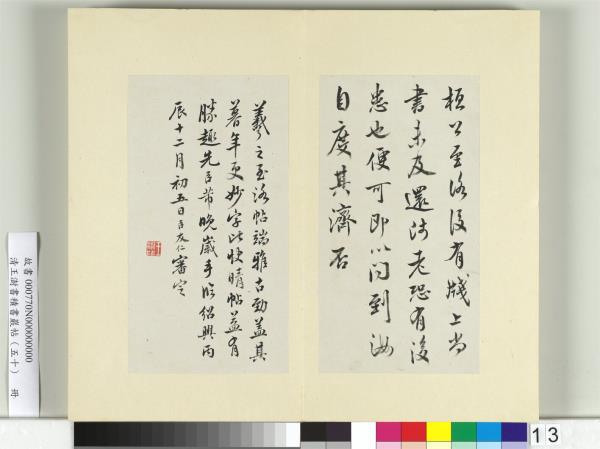 桓公至洛没有牋上尚
書未反還沛老恐有後
患也便可即以問到汝
自度其濟否
羲之至洛帖端雅古勁蓋其
暮年更妙字此快晴帖益有
勝趣先臣芾晚歲手臨紹興丙
辰十二月初五日臣友仁審定
故書 000770N000000000
清王澍書積書巖帖（五十） 冊
13